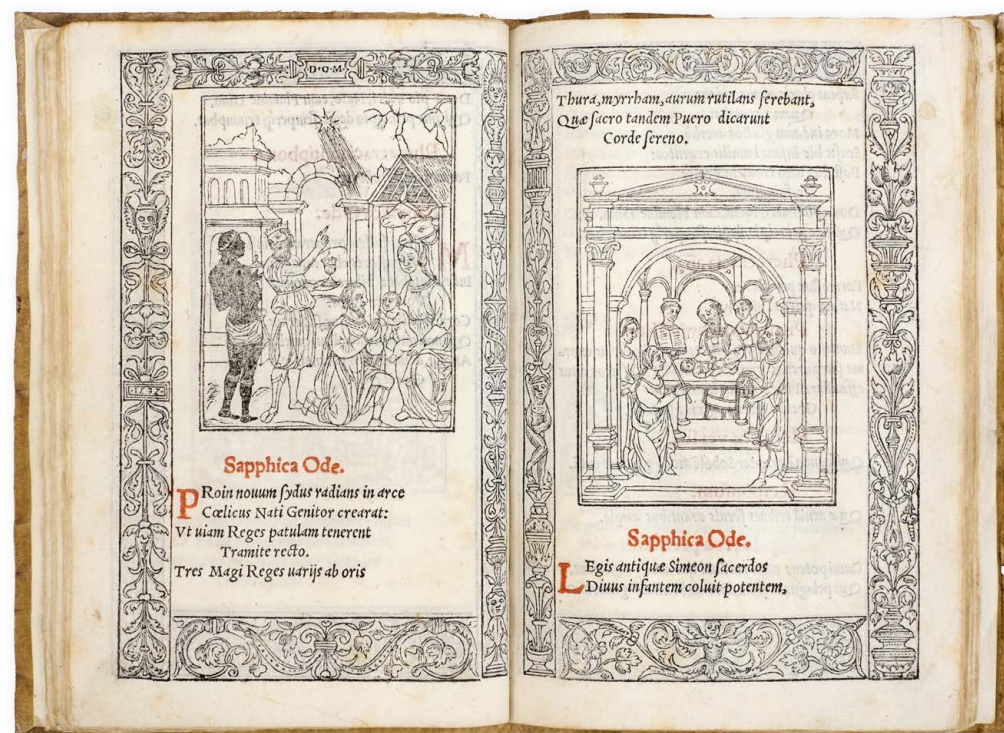 D·O·M
Sapphica Ode.
PRoin nouum sydus radians in arce
Cœlicus Nati Genitor crearat:
Vt uiam Reges patulam tenerent
Tramite recto.
Tres Magi Reges uarijs ab oris
Thura, myrrham, aurum rutilans ferebant,
Quæ sacro tandem Puero dicarunt
Corde sereno.
Sapphica Ode.
LEgis antiquæ Simeon sacerdos
Diuus infantem coluit potentem,